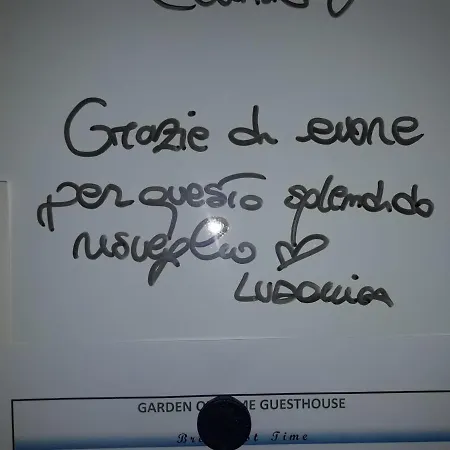 Grazie di cuore
per questo splendido
risveglio
LUDOVICA
GARDEN O ME GUESTHOUSE
Bre st Time